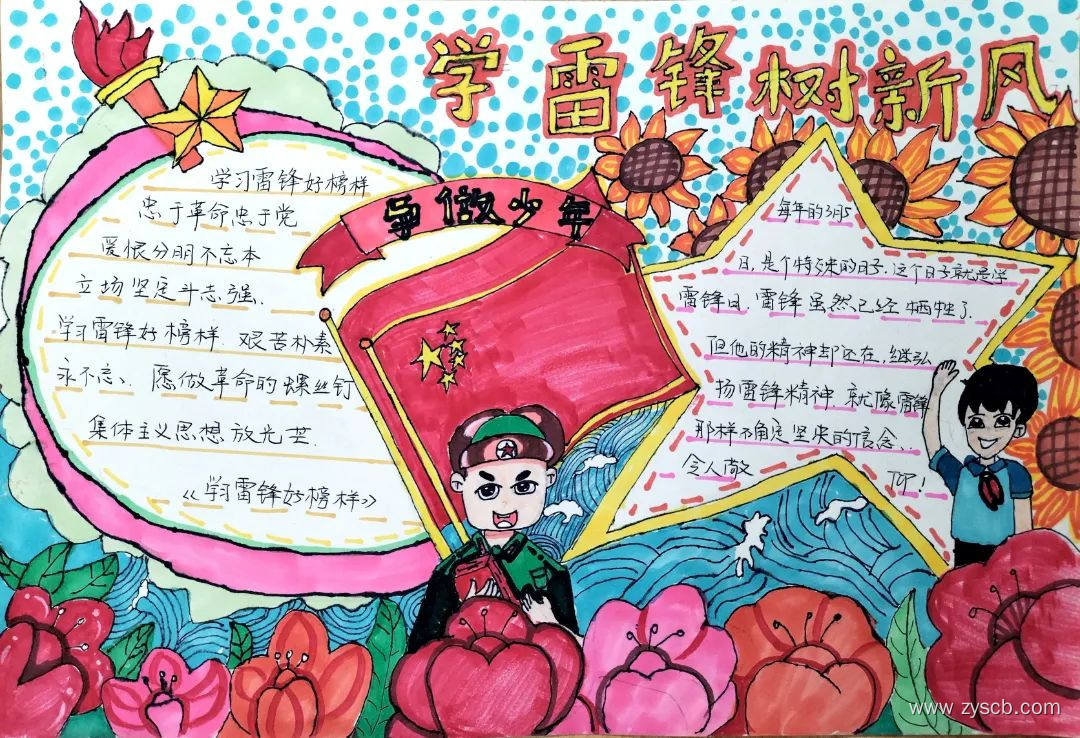 学雷锋树新风
争做少年
学习雷锋好榜样
忠于革命忠于党
爱恨分明不忘本
立场坚定斗志强、
学习雷锋好榜样、艰苦朴素
永不忘、愿做革命的螺丝钉
集体主义思想放光芒.
《学习雷锋好榜样》
每年的3月5
日,是个特殊的日子.这个日子就是学
雷锋日.雷锋虽然已经牺牲了.
但他的精神却还在,继弘
扬雷锋精神 就像雷锋
那样不
坚
的信念、、
令人敬
www.zyscb.com